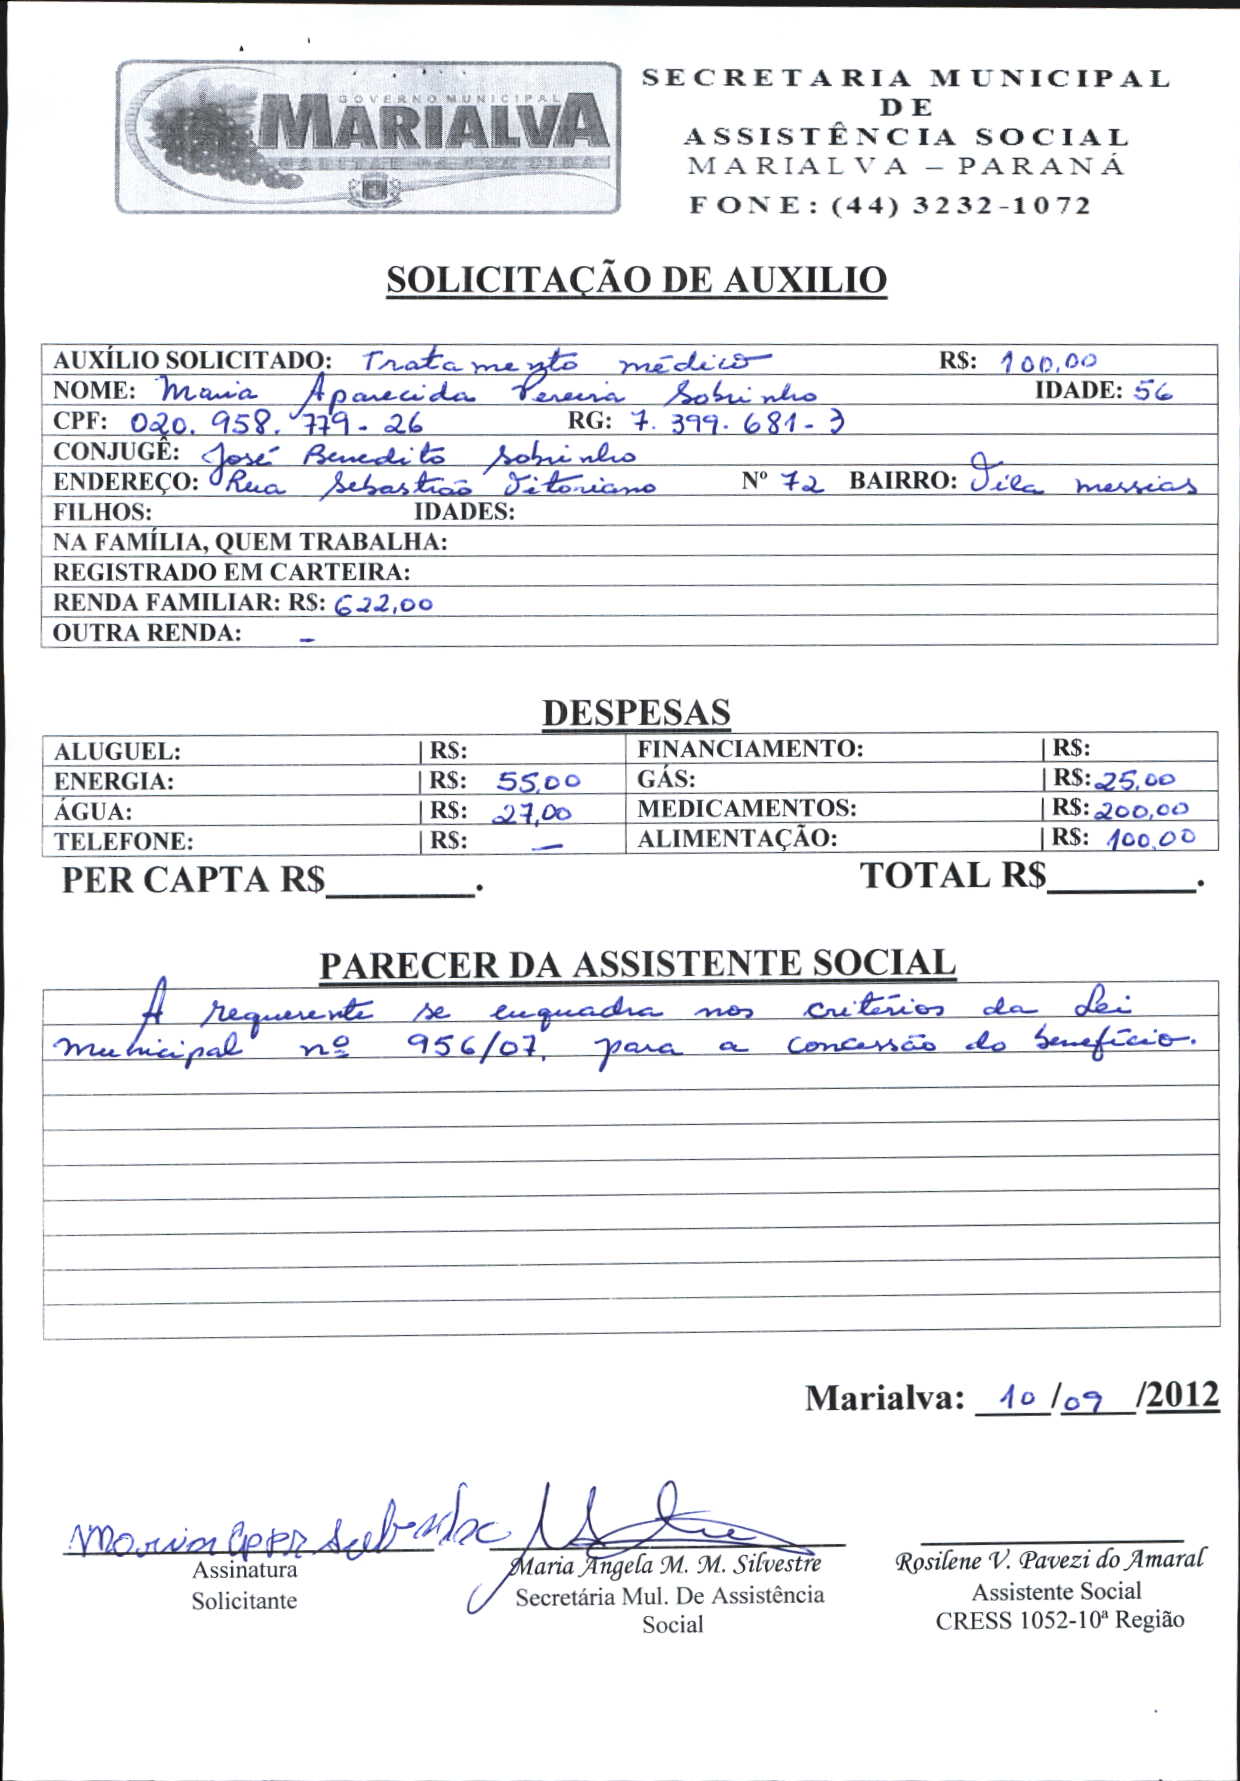 GOVERNO MUNICIPAL
MARIALVA
SECRETARIA MUNICIPAL
DE
ASSISTÊNCIA SOCIAL
MARIALVA – PARANÁ
FONE: (44) 3232-1072
SOLICITAÇÃO DE AUXILIO
AUXÍLIO SOLICITADO: Tratamento médico R$: 100,00
NOME: Maria Aparecida Pereira Sobrinho IDADE: 56
CPF: 020.958.779-26 RG: 7.399.681-3
CONJUGÊ: José Benedito Sobrinho
ENDEREÇO: Rua Sebastião Vitoriano Nº 72 BAIRRO: Vila messias
FILHOS: IDADES:
NA FAMÍLIA, QUEM TRABALHA:
REGISTRADO EM CARTEIRA:
RENDA FAMILIAR: R$: 622,00
OUTRA RENDA: –
DESPESAS
ALUGUEL: | R$: FINANCIAMENTO: | R$:
ENERGIA: | R$: 55,00 GÁS: | R$: 25,00
ÁGUA: | R$: 27,00 MEDICAMENTOS: | R$: 200,00
TELEFONE: | R$: — ALIMENTAÇÃO: | R$: 100,00
PER CAPTA R$________. TOTAL R$________.
PARECER DA ASSISTENTE SOCIAL
A requerente se enquadra nos critérios da Lei
Municipal nº 956/07, para a concessão do benefício.
Marialva: 10/09/2012
Assinatura
Solicitante
Maria Angela M. M. Silvestre
Secretária Mul. De Assistência
Social
Rosilene V. Pavezi do Amaral
Assistente Social
CRESS 1052-10ª Região